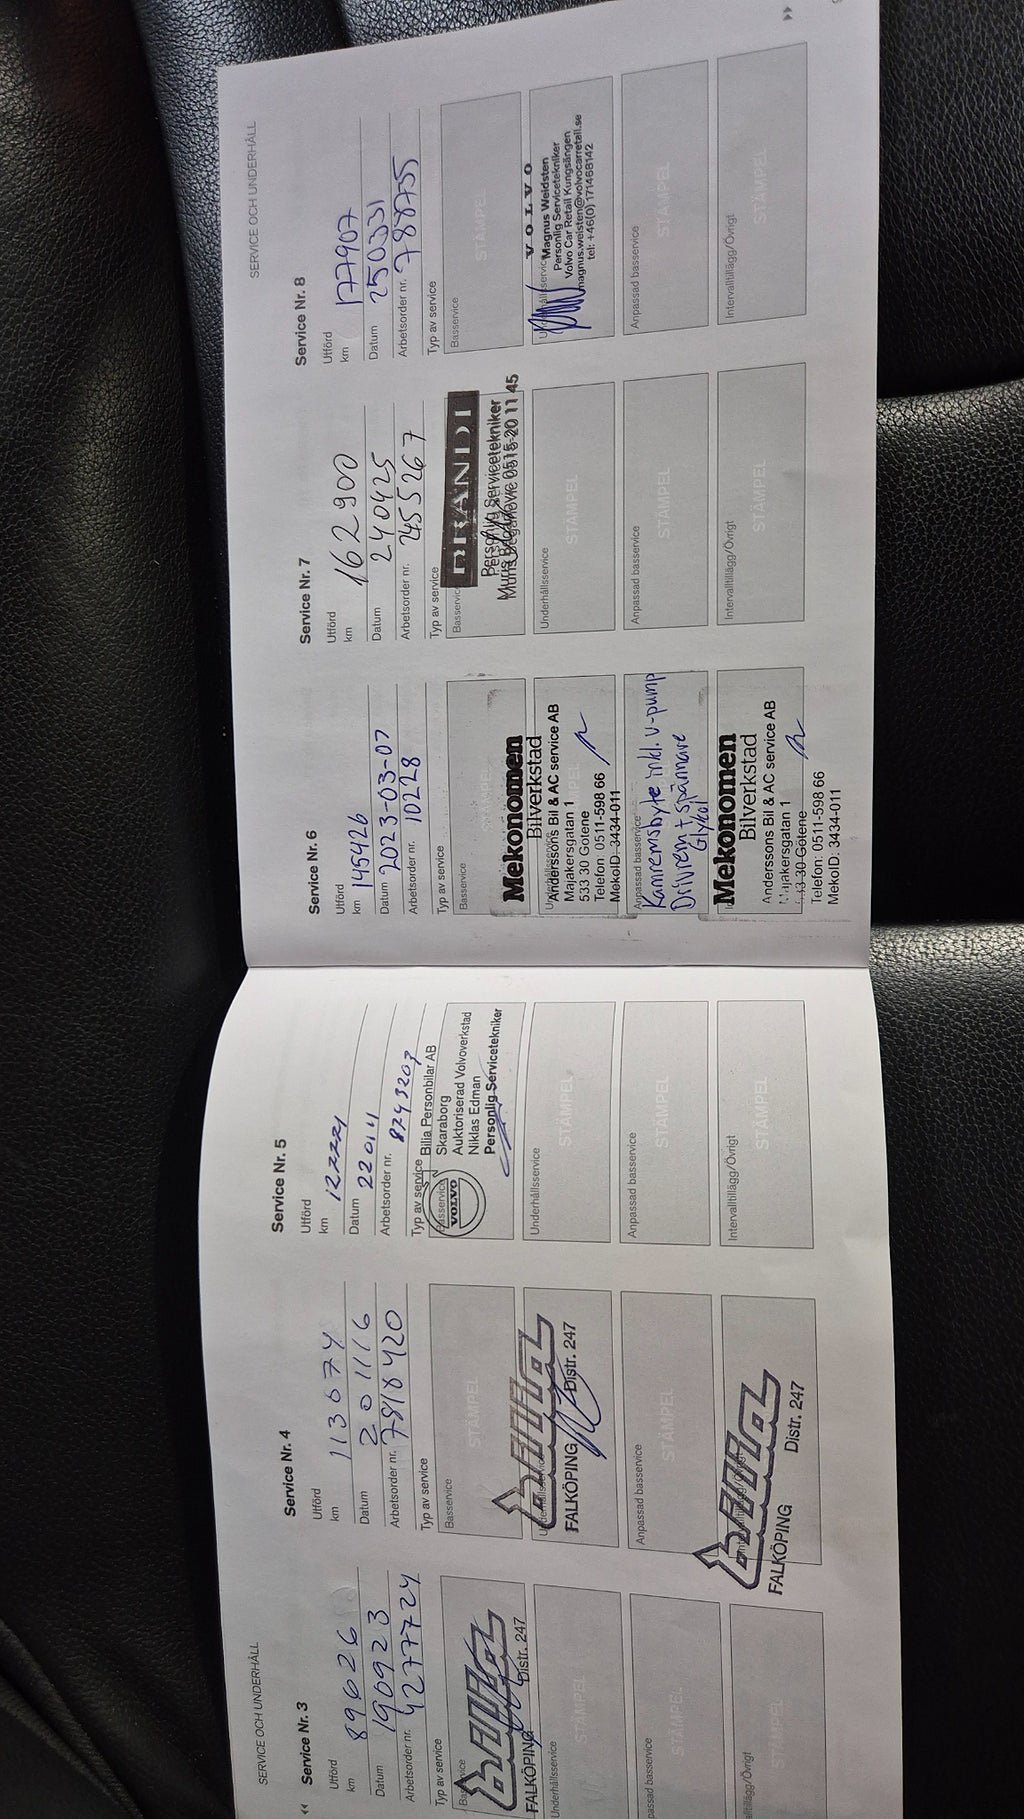 SERVICE OCH UNDERHÅLL
Service Nr. 3
Utförd
km 89626
Datum 190923
Arbetsorder nr. 4277724
Typ av service
Basservice
FALKÖPING Distr. 247
Underhållsservice
Anpassad basservice
STÄMPEL
Intervalltillägg/Övrigt
STÄMPEL
Service Nr. 4
Utförd
km 113674
Datum 201116
Arbetsorder nr. 7818420
Typ av service
Basservice
STÄMPEL
FALKÖPING Distr. 247
Anpassad basservice
STÄMPEL
FALKÖPING Distr. 247
Service Nr. 5
Utförd
km 122221
Datum 220111
Arbetsorder nr. 8243207
Typ av service
Basservice
VOLVO
Bilia Personbilar AB
Skaraborg
Auktoriserad Volvoverkstad
Niklas Edman
Personlig Servicetekniker
Underhållsservice
STÄMPEL
Anpassad basservice
STÄMPEL
Intervalltillägg/Övrigt
STÄMPEL
SERVICE OCH UNDERHÅLL
Service Nr. 6
Utförd
km 145426
Datum 2023-03-07
Arbetsorder nr. 10228
Typ av service
Basservice
STÄMPEL
Mekonomen
Bilverkstad
Anderssons Bil & AC service AB
Majakersgatan 1
533 30 Götene
Telefon: 0511-598 66
MekoID: 3434-011
Anpassad basservice
Kamremsbyte inkl. v-pump
Drivrem + spännare
Glykol
Mekonomen
Bilverkstad
Anderssons Bil & AC service AB
Majakersgatan 1
533 30 Götene
Telefon: 0511-598 66
MekoID: 3434-011
Service Nr. 7
Utförd
km 162900
Datum 240425
Arbetsorder nr. 245267
Typ av service
Basservice
BRANDT
Personlig Servicetekniker
Muris Beganovic 0515-20 11 45
Underhållsservice
STÄMPEL
Anpassad basservice
STÄMPEL
Intervalltillägg/Övrigt
STÄMPEL
Service Nr. 8
Utförd
km 177907
Datum 250331
Arbetsorder nr. 788755
Typ av service
Basservice
STÄMPEL
VOLVO
Magnus Weidsten
Personlig Servicetekniker
Volvo Car Retail Kungsängen
magnus.weisten@volvocarretail.se
tel: +46(0) 171468142
Anpassad basservice
STÄMPEL
Intervalltillägg/Övrigt
STÄMPEL